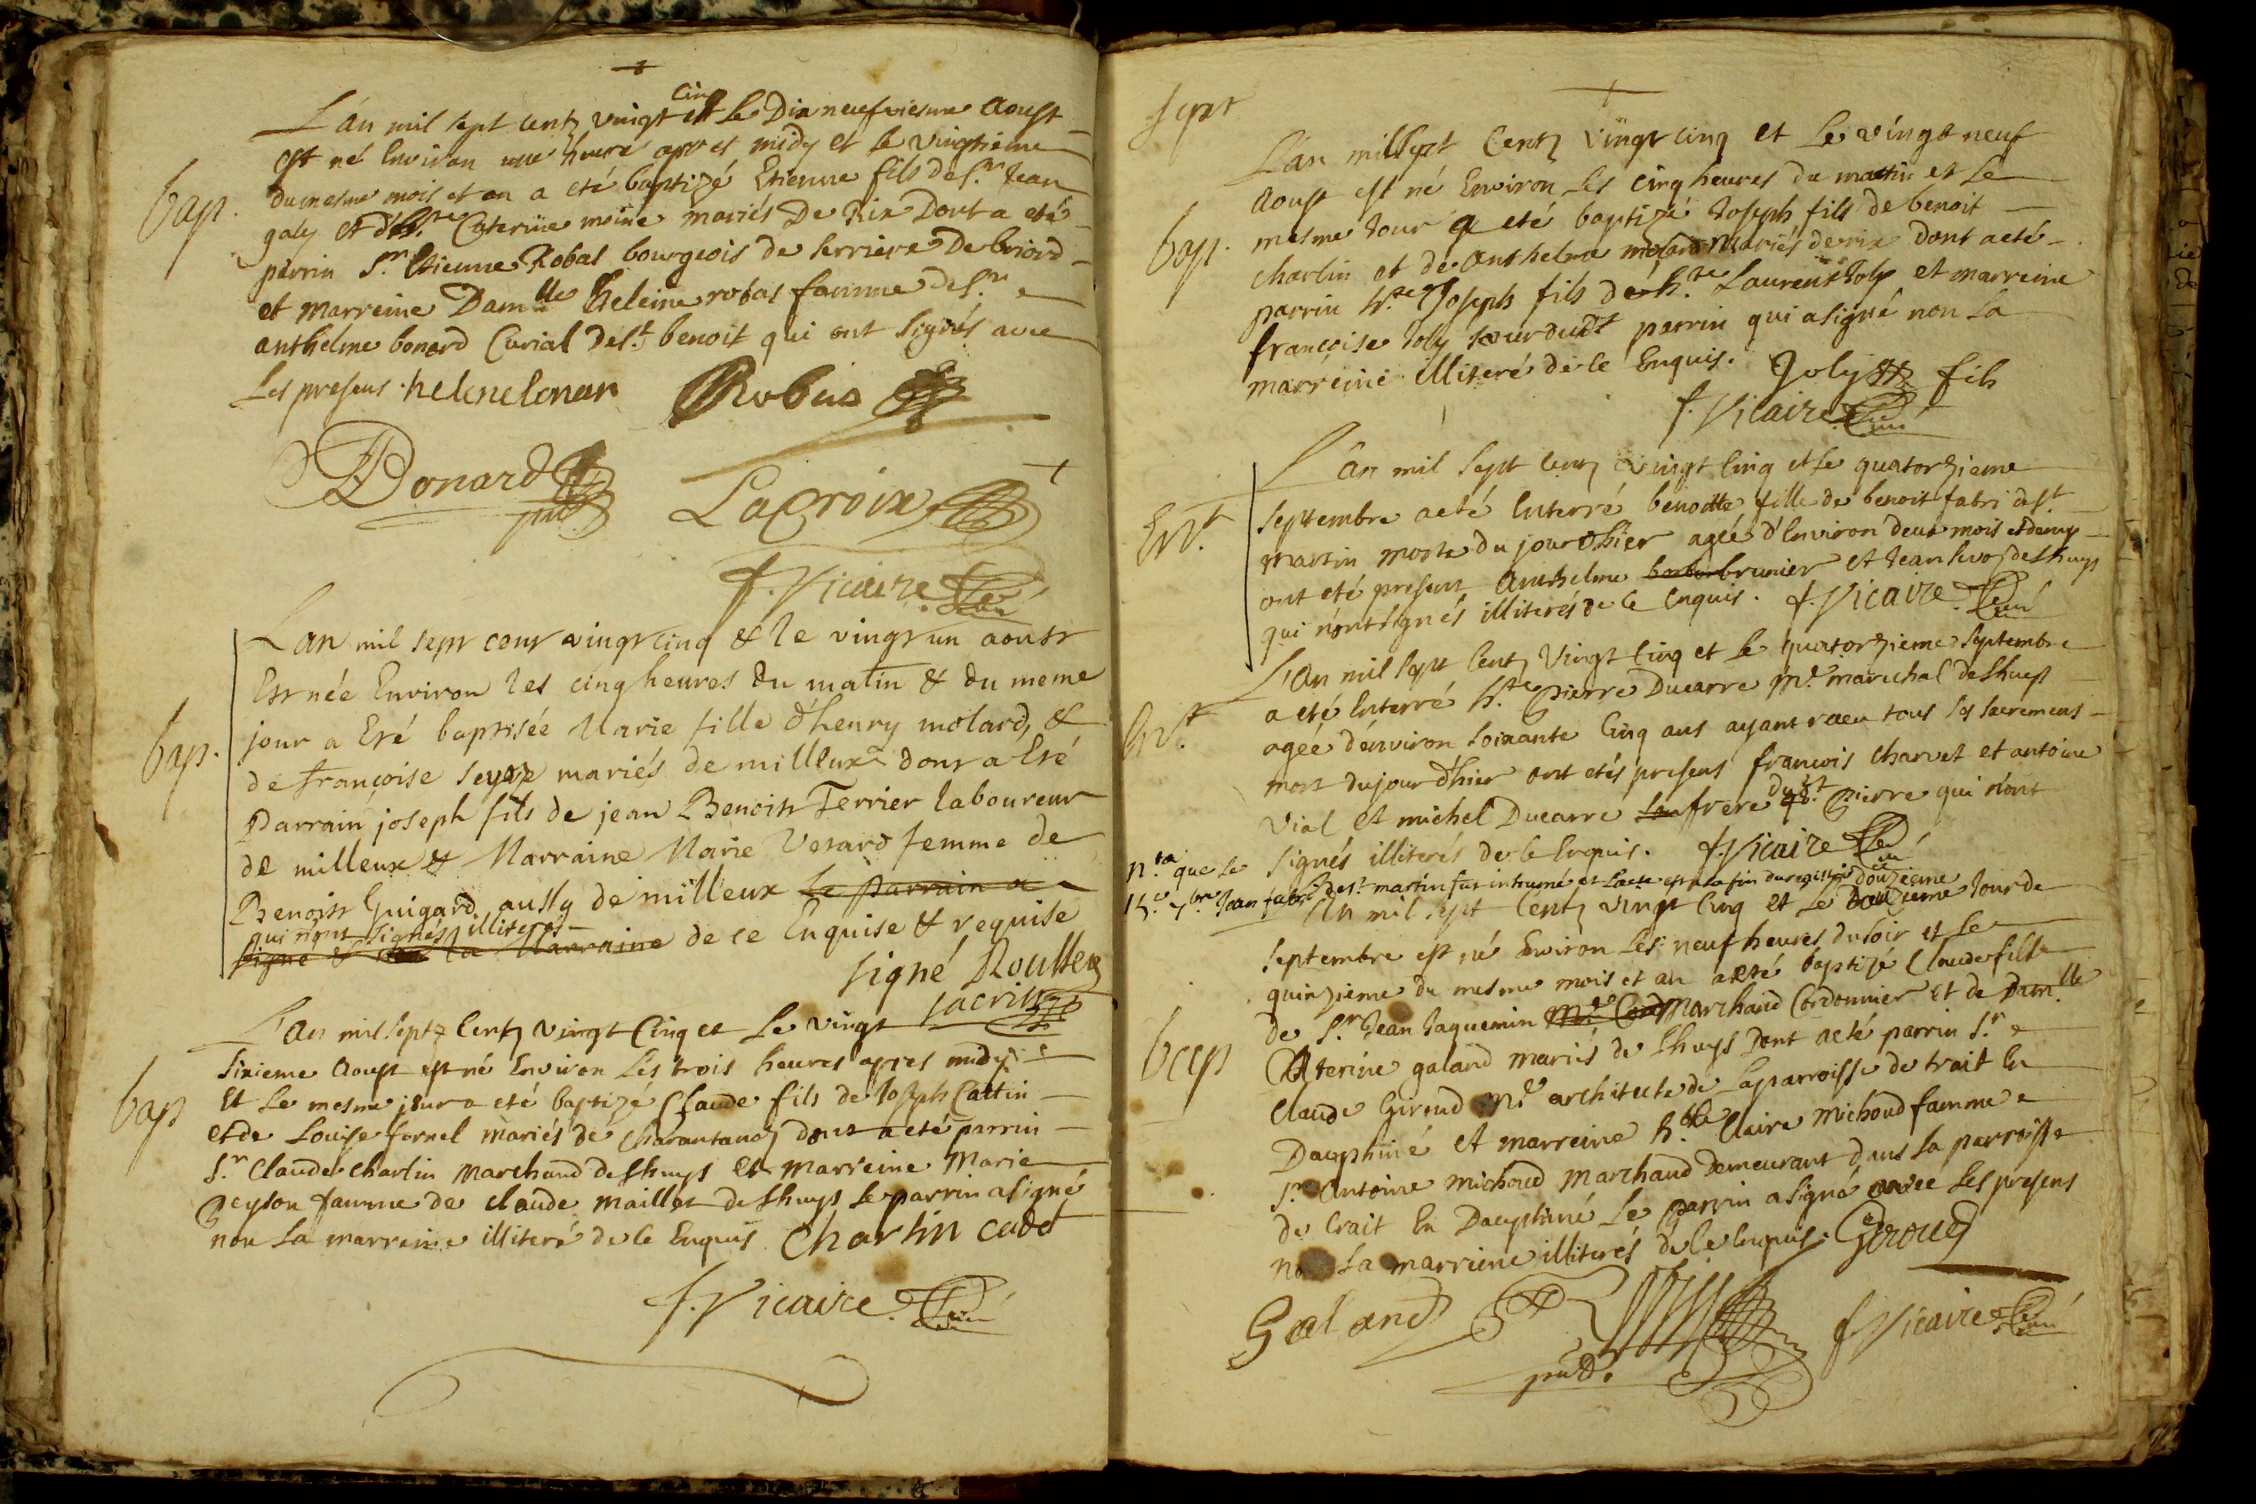 L'an mil sept centz vingt cinq et le Dix neufviesme aoust
bap.
est né Environ une heure apres midy et le vingtieme
du mesme mois et an a eté baptizé Etienne fils de Sr. Jean
galy et d'h.te Caterine moine mariés De Rix Dont a eté
perrin Sr. Etienne Robas bourgeois de serriere De briord
et marreine Dam.lle heleine robas famme de Sr.
anthelme bonard Curial de St. benoit qui ont signés avec
Les presens. helene bonar Robas
Bonard pnt
LaCroix
f. Vicaire Curé
Lan mil sept cent vingt cinq & le vingt un aoust
Est née Environ les cinq heures du matin & du meme
bap.
jour a Eté baptisée Marie fille d'henry molard, &
de françoise mariés de milleux dont a Eté
Parrain joseph fils de jean Benoist Ferrier laboureur
de milleux & Marraine Marie Verard femme de
Benoist Guigard aussy de milleux le parrain a
qui n'ont signés illiterés
signé & la Marraine de ce Enquise & requise
signé Roussez
sacrist
L'an mil septz Centz vingt Cinq et Le vingt
sixieme aoust est né Environ Les trois heures apres midy
bap
Et Le mesme jour a eté baptizé Claude fils de Joseph Cattin
et de Louise fornel mariés de Charantanay dont a eté parrin
Sr. Claude Charlin marchand de Lhuys Et marreine Marie
Peyson famme de claude maillet de Lhuys le parrin a signé
non La marreine illiteré de Ce Enquis Charlin cadet
f. Vicaire Curé
sept
L'an mil sept Centz vingt cinq et Le vingt neuf
Aoust est né Environ Les cinq heures du mattin et Le
bap.
mesme Jour a eté baptizé Joseph fils de benoit
Charlin et de Anthelma molard mariés de rix dont a eté
parrin h.te Joseph fils de h.te Laurent Joly et marreine
françoise Joly soeur dudt. perrin qui a signé non La
marreine illiteré de Ce Enquis. Joly fils
f. Vicaire Curé
L'an mil sept Centz vingt Cinq et le quatorzieme
Ent.
septembre a eté Enterré benoitte fille de benoit fabri de St.
martin morte du jour d'hier agée d'Environ deux mois et demy
ont eté presens Anthelme brunier et Jean de Lhuys
qui n'ont signés illiterés de Ce Enquis. f. Vicaire Curé
L'an mil sept Centz Vingt Cinq et Le quatorzieme septembre
Ent.
a eté Enterré h.te Pierre Ducarre M.e marechal de Lhuys
agée d'environ soixante Cinq ans ayant receu tous les sacremens
mort du jour d'hier ont etés presens francois Charvet et antoine
Vial Et michel Ducarre frere dudt. Pierre qui n'ont
signés illiterés de Ce Enquis. f. Vicaire Curé
n.ta que Le
15.e 7.bre Jean fabri de St. martin fut inhumé et L'acte est a la fin du registre
douzieme
L'an mil sept Centz vingt Cinq et Le Jour de
septembre est né Environ Les neuf heures du soir et Le
quinzieme du mesme mois et an a eté baptizé Claude fils
bap
de Sr. Jean Jaquemin Marchand Cordonnier Et de Dam.lle
Caterine galand mariés de Lhuys Dont a eté parrin Sr.
Claude Giroud M.e architecte de La parroisse de trait En
Dauphiné Et marreine h.te Claire michoud famme
Sr. Antoine michoud marchand Demeurant dans La parroisse
de trait En Dauphiné Le parrin a signé avec Les presens
non La marriene illiterés de Ce Enquis. Giroud
Galand
pnt.
f. Vicaire Curé